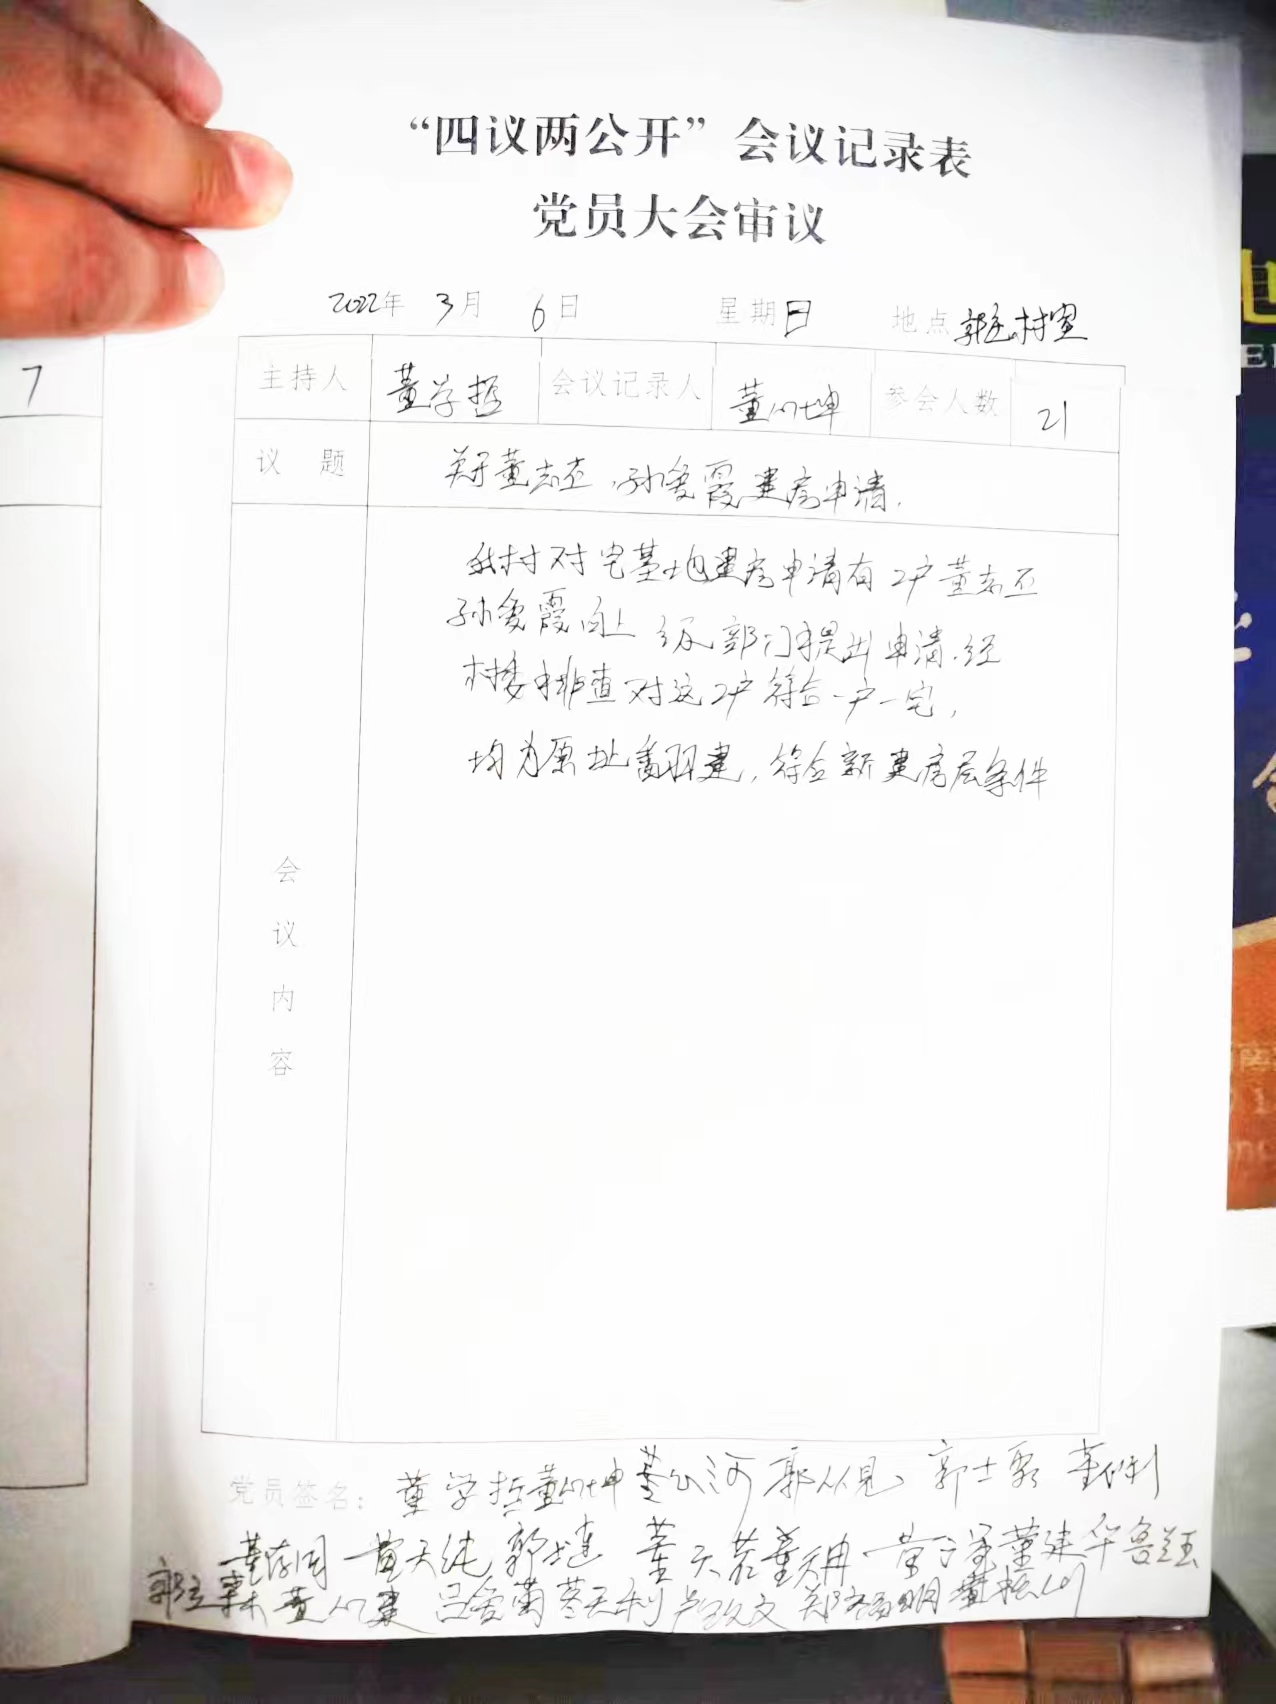 “四议两公开”会议记录表
党员大会审议
2022年 3月 6日 星期日 地点 村室
主持人 董学哲 会议记录人 董 坤 参会人数 21
议 题 关于董志 孙爱霞建房申请.
我村对宅基地建房申请有2户董志
孙爱霞向上级部门提出申请.经
村委排查对这2户符合一户一宅,
均为原址翻建,符合新建房屋条件
会议内容
党员签名: 董学哲 董 坤 董 河 郭 郭士 董 利
董 同 黄天纯 郭 董天 董天 董建华 鲁
郭 董 建 吕爱菊 天利 卢 文 郑 明 董
7